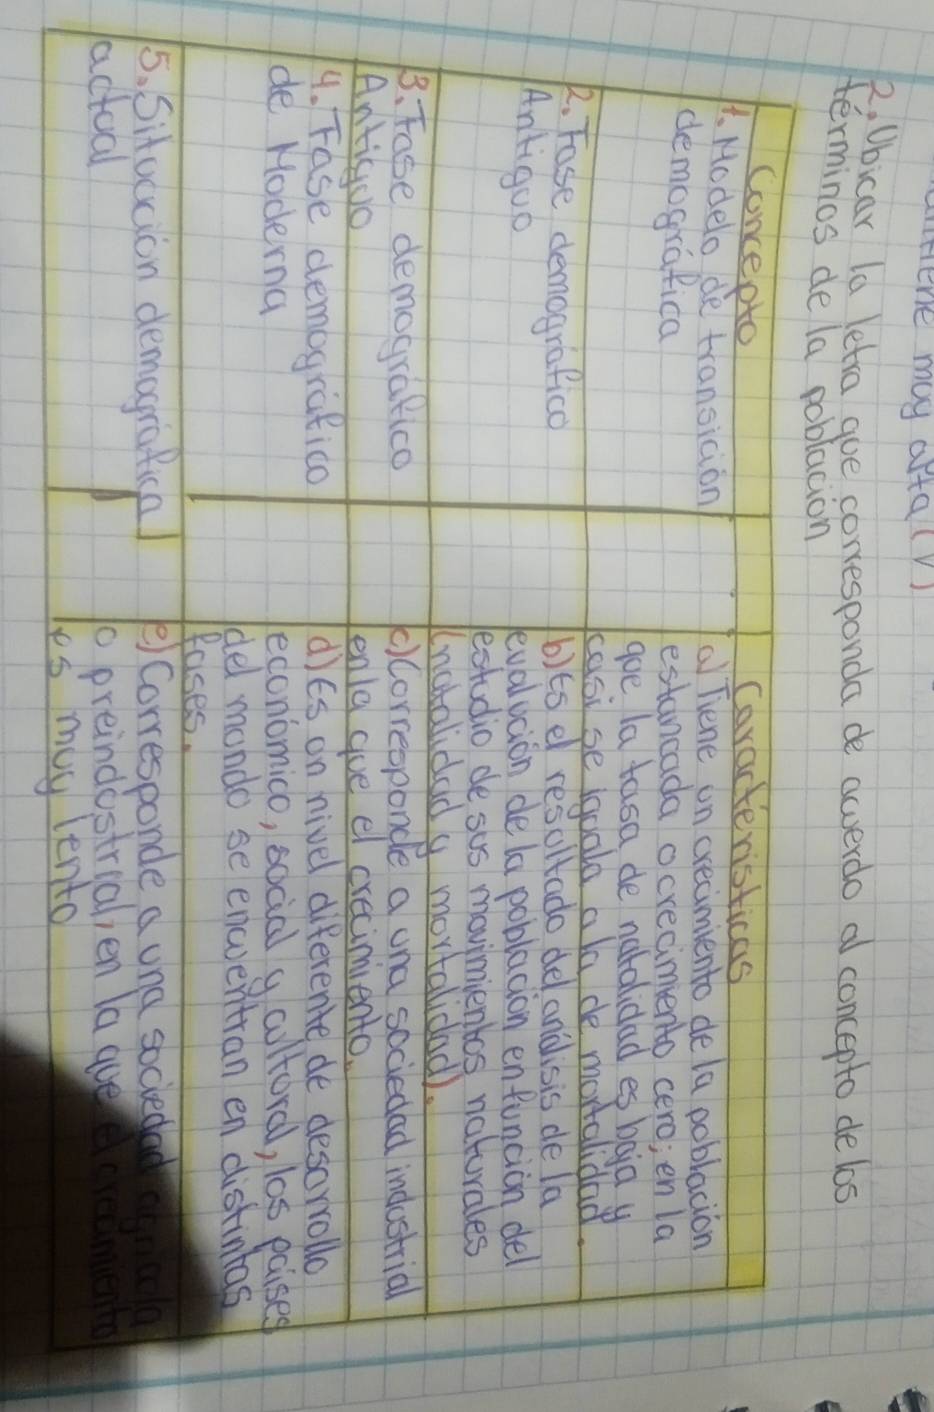 muy alta (V)
2. Ubicar la letra que corresponda de acuerdo al concepto de los
términos de la población
Concepto
Caractéristicas
1. Modelo de transición
demográfica
a) Tiene un crecimiento de la población
estancada o crecimiento cero; en la
que la tasa de natalidad es baja y
casi se iguala a la de mortalidad.
2. Fase demográfico
Antiguo
b) Es el resultado del análisis de la
evolución de la población en función del
estudio de sus movimientos naturales
(natalidad y mortalidad).
3. Fase demográfico
Antiguo
c) Corresponde a una sociedad industrial
en la que el crecimiento.
4. Fase demográfico
de Moderna
d) Es un nivel diferente de desarrollo
económico, social y cultural, los paises
del mundo se encuentran en distintas
fases.
5. Situación demográfica
actual
e) Corresponde a una sociedad agrícola
o preindustrial, en la que el crecimiento
es muy lento